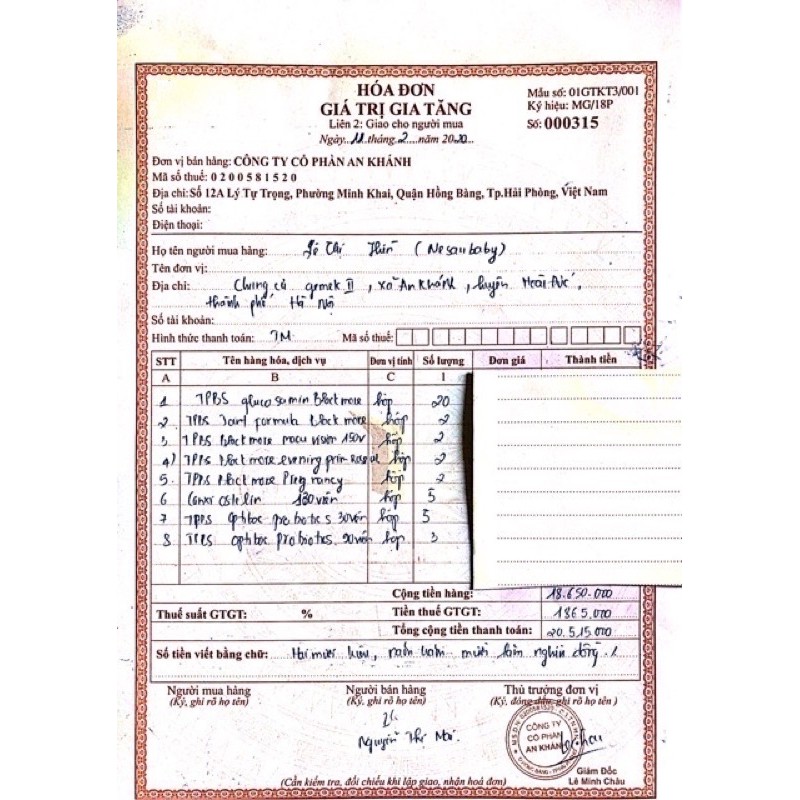 HÓA ĐƠN
GIÁ TRỊ GIA TĂNG
Liên 2: Giao cho người mua
Ngày 11 tháng 2 năm 2020
Mẫu số: 01GTKT3/001
Ký hiệu: MG/18P
Số: 000315
Đơn vị bán hàng: CÔNG TY CỔ PHẦN AN KHÁNH
Mã số thuế: 0200581520
Địa chỉ: Số 12A Lý Tự Trọng, Phường Minh Khai, Quận Hồng Bàng, Tp.Hải Phòng, Việt Nam
Số tài khoản:
Điện thoại:
Họ tên người mua hàng: Lê Thị (Nesaubaby)
Tên đơn vị:
Địa chỉ: Chung cư gemek II, xã An Khánh, huyện Hoài Đức,
thành phố Hà Nội
Số tài khoản:
Hình thức thanh toán: TM Mã số thuế:
STT Tên hàng hóa, dịch vụ Đơn vị tính Số lượng Đơn giá Thành tiền
A B C 1
1 TPBS glucosamin Blackmore hộp 20
2 TPBS Joint formula Blackmore hộp 2
3 TPBS Blackmore macu vision 150v hộp 2
4) TPBS Blackmore evening primrose hộp 2
5 TPBS Blackmore Pregnancy hộp 2
6 ostelin 130 viên hộp 5
7 TPBS optibac probiotics 30 viên hộp 5
8 TPBS optibac probiotics 90 viên hộp 3
Cộng tiền hàng: 18.650.000
Thuế suất GTGT: % Tiền thuế GTGT: 1865.000
Tổng cộng tiền thanh toán: 20.515.000
Số tiền viết bằng chữ: Hai mươi triệu, năm trăm mười lăm nghìn đồng./
Người mua hàng
(Ký, ghi rõ họ tên)
Người bán hàng
(Ký, ghi rõ họ tên)
Nguyễn Thị
Thủ trưởng đơn vị
(Ký, đóng dấu, ghi rõ họ tên)
CÔNG TY
CỔ PHẦN
AN KHÁNH
Giám Đốc
Lê Minh Châu
(Cần kiểm tra, đối chiếu khi lập giao, nhận hoá đơn)